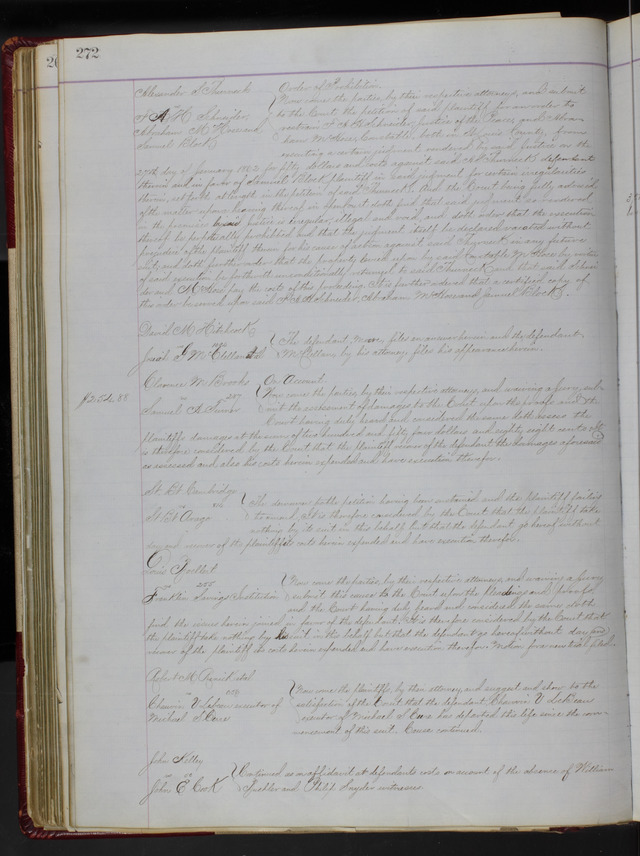 272
Alexander S. Order of Prohibition
Now come the parties, by their respective attorneys, and submit
H Schneider to the Court the petition of said plaintiff for an order to
Abraham M
Samuel Block Constable, both in St. Louis County, from
executing a certain judgment rendered by said justice on the
27th day of January 1882 for fifty dollars and costs against said defendant
therein and in favor of Samuel Block plaintiff in said judgment for certain irregularities
therein, set forth at length in the petition of said And the Court being fully advised
of the matter upon hearing thereof in Court doth find that said judgment as rendered
in the premises by said justice is irregular, illegal and void, and doth order that the execution
thereof be perpetually prohibited and that the judgment itself be declared vacated without
prejudice of the plaintiff therein for his cause of action against said in any future
suit, and doth further order that the property levied upon by said Constable by virtue
of said execution be forthwith unconditionally returned to said and that said
and pay the costs of this proceeding. It is further ordered that a certified copy of
this order be served upon said Schneider, Abraham and Samuel Block.
David M Hitchcock
The defendant, files an answer herein and the defendant
vs
by his attorney files his appearance herein.
Clarence M Brooks On Account
$254.88 vs 257 Now come the parties, by their respective attorneys, and waiving a jury, sub-
Samuel mit the assessment of damages to the Court upon the proofs and the
Court having duly heard and considered the same doth assess the
plaintiffs damages at the sum of two hundred and fifty four dollars and eighty eight cents. It
is therefore considered by the Court that the plaintiff recover of the defendant the damages aforesaid
as assessed and also his costs herein expended and have execution therefor.
St. Bt Cambridge
vs The demurrer to the petition having been sustained and the plaintiff failing
St. Bt Arago to amend, it is therefore considered by the Court that the plaintiff take
nothing by its suit in this behalf but that the defendant go hereof without
day and recover of the plaintiff its costs herein expended and have execution therefor.
Louis
vs 255 Now come the parties, by their respective attorneys and waiving a jury
Franklin Savings Institution submit this cause to the Court upon the pleadings and proofs
and the Court having duly heard and considered the same doth
find the issues herein joined in favor of the defendant. It is therefore considered by the Court that
the plaintiff take nothing by his suit in this behalf but that the defendant go hereof without day and
recover of the plaintiff its costs herein expended and have execution therefor. Motion for new trial filed.
Robert M et al
vs Now come the plaintiffs, by their attorney and suggest and show to the
executor of satisfaction of the Court that the defendant
Michael S executor of Michael S has departed this life since the com-
mencement of this suit. Cause continued.
John Kelley
vs Continued on affidavit at defendants costs on account of the absence of William
John E Cook and Philip Snyder witnesses.